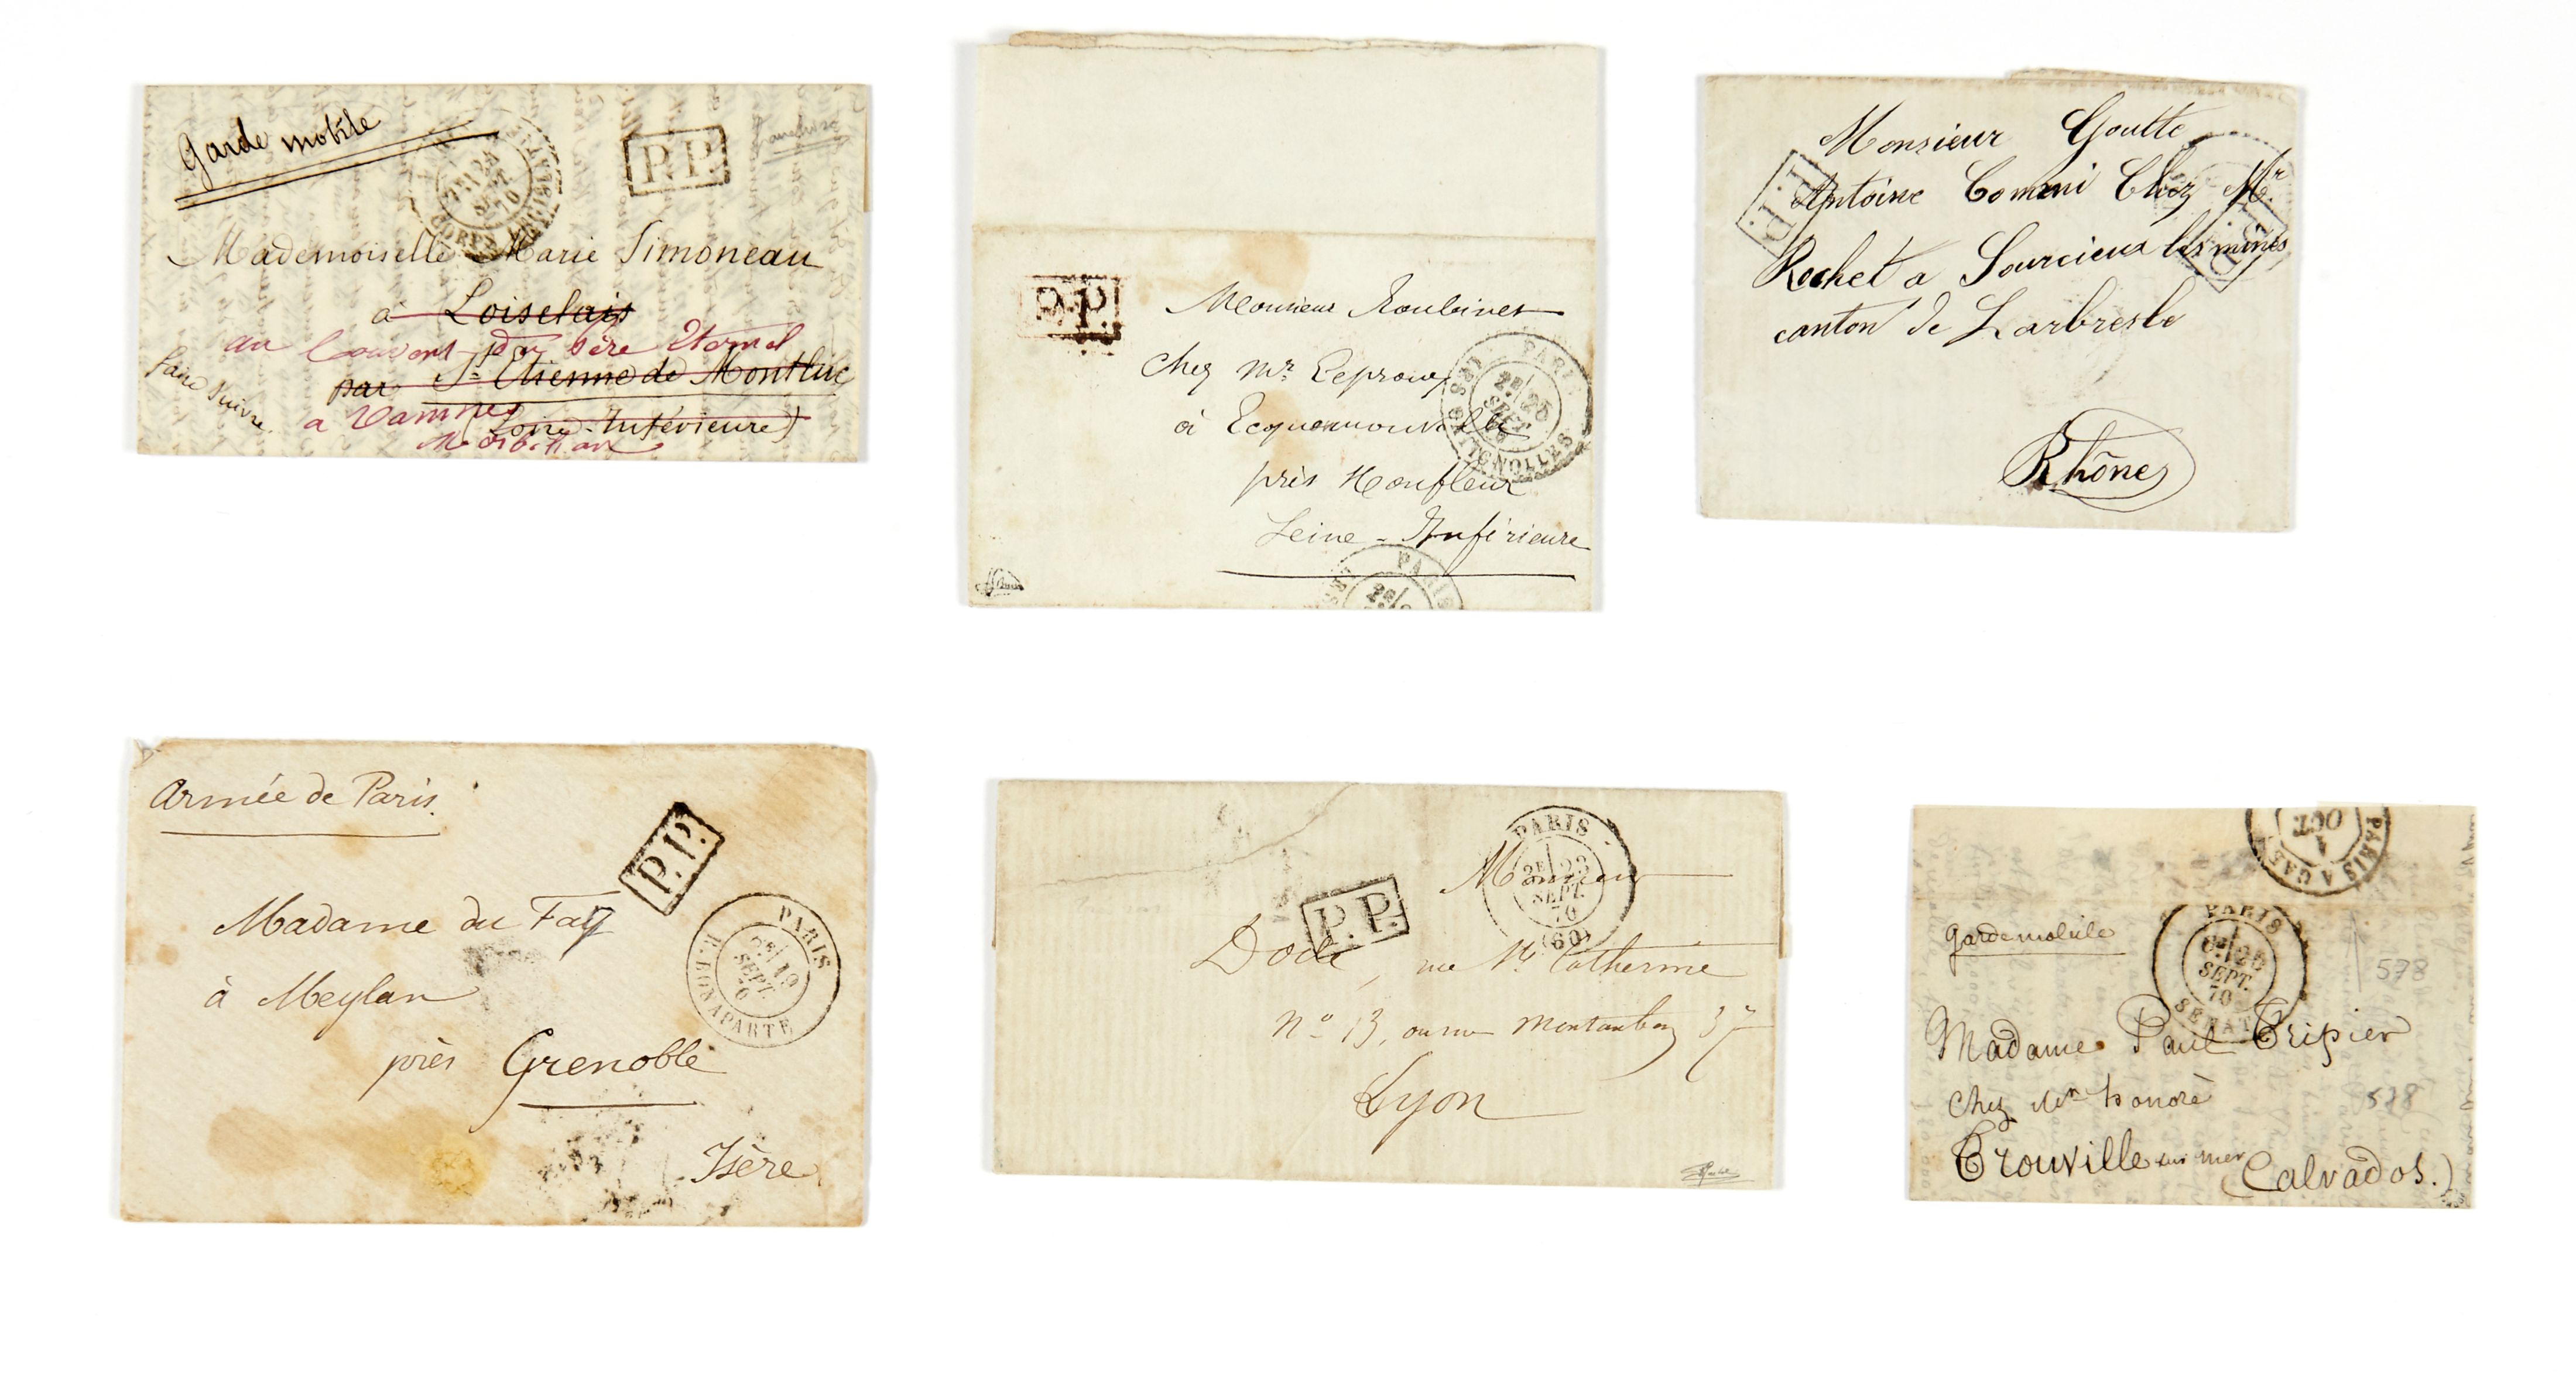 Garde mobile
P.P.
SEPT.
70
Mademoiselle Marie Simoneau
à Loiselais
au Couvent du Père Eternel
faire suivre
par St Etienne de Montluc
a Vannes
(Loire-Inférieure)
Morbihan
P.P.
Monsieur
chez Mr
à
près Honfleur
Seine-Inférieure
PARIS
2E/25
SEPT.
BATIGNOLLES
PARIS
2E/
Monsieur Goutte
Antoine Commi Chez Mr
Rochet a Sourcieux les mines
canton de Larbresle
Rhône
P.P.
P.P.
Armée de Paris
P.P.
PARIS
2E/19
SEPT.
70
R. BONAPARTE
Madame du Fay
à Meylan
près Grenoble
Isère
PARIS
2E/23
SEPT.
70
(60)
P.P.
Monsieur
Dode, rue Ste Catherine
n° 13, ou rue
Lyon
PARIS A GARE
1
OCT.
Garde mobile
PARIS
SEPT.
70
SENAT
578
Madame Paul Tripier
chez Mr honoré
578
Trouville sur mer
(Calvados.)